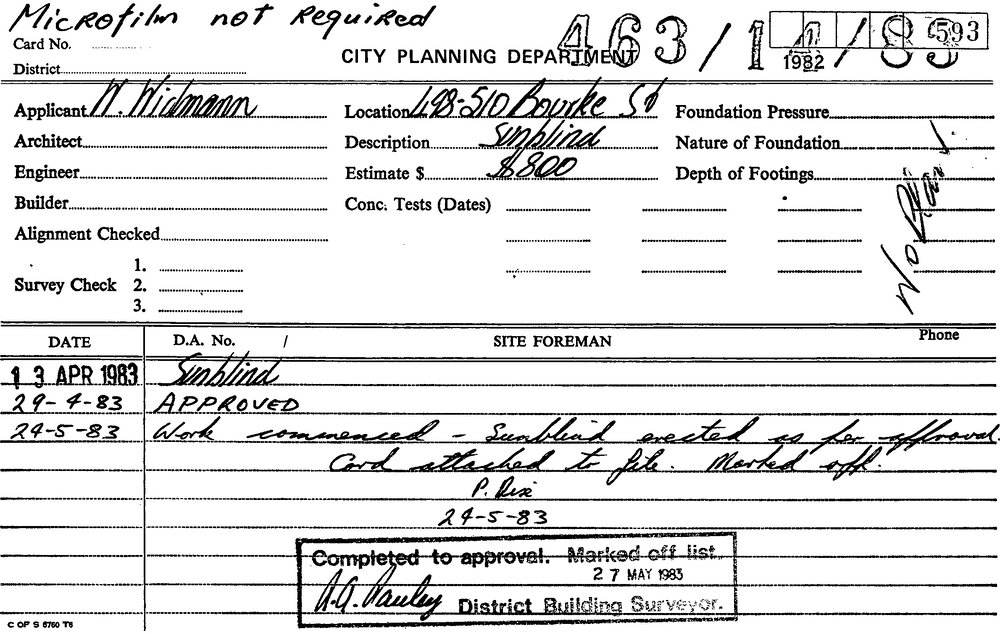 Microfilm not Required
463/14/83
593
1982
Card No.
CITY PLANNING DEPARTMENT
District
Applicant W. Widmann
Location 498-510 Bourke St
Foundation Pressure
Architect
Description Sunblind
Nature of Foundation
Engineer
Estimate $ $800
Depth of Footings
Builder
Conc. Tests (Dates)
Alignment Checked
No Plan!
Survey Check
1.
2.
3.
DATE
D.A. No. /
SITE FOREMAN
Phone
13 APR 1983 Sunblind
29-4-83 APPROVED
24-5-83 Work commenced - Sunblind erected as per approval.
Card attached to file. Marked off.
P.
24-5-83
Completed to approval. Marked off list.
27 MAY 1983
District Building Surveyor.
C OF S 6760 T6